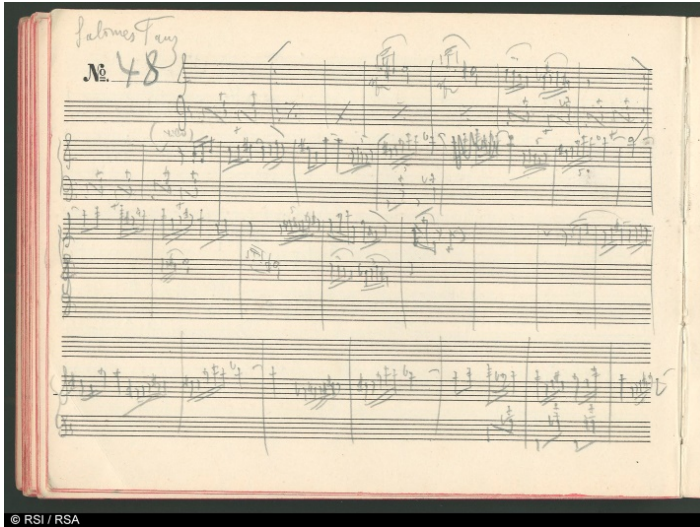 Salomes Tanz
No. 48
© RSI / RSA